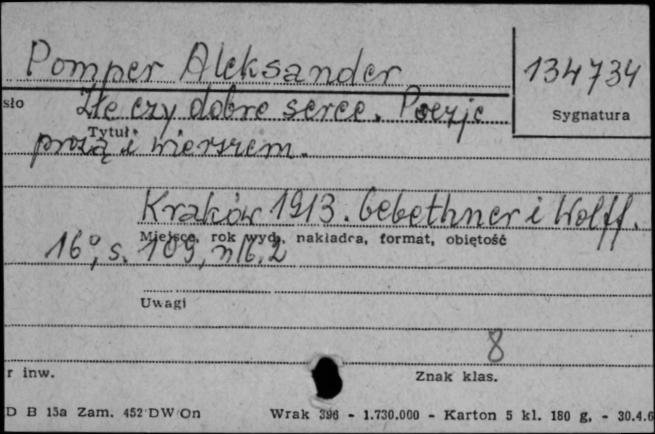 Pomper Aleksander
134734
sło
Złe czy dobre serce. Poezje
Sygnatura
Tytuł
prozą i wierszem.
Kraków 1913. Gebethner i Wolff.
Miejsce, rok wyd., nakładca, format, objętość
16°, s. 109, nlb. 2
Uwagi
8
r inw.
Znak klas.
D B 15a Zam. 452 DW On Wrak 396 - 1.730.000 - Karton 5 kl. 180 g. - 30.4.6